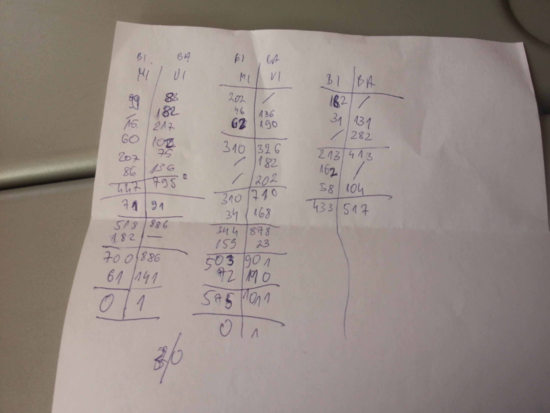 BI BA
MI VI
99 86
182
16 217
60 102
207 75
86 136
467 798
71 91
518 886
182 —
700 886
61 141
0 1
BI BA
MI VI
202 /
46 136
62 190
310 326
/ 182
/ 202
310 710
34 168
344 878
159 23
503 901
72 110
575 1011
0 1
BI BA
182 /
31 131
/ 282
213 413
162 /
58 104
433 517
/0